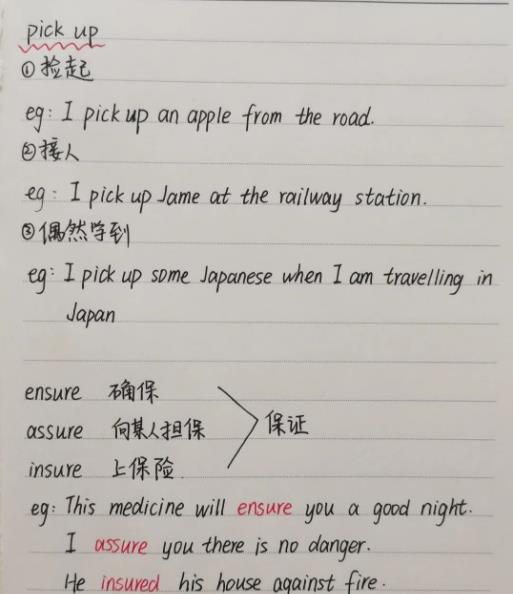 pick up
①捡起
eg: I pick up an apple from the road.
②接人
eg: I pick up Jame at the railway station.
③偶然学到
eg: I pick up some Japanese when I am travelling in
Japan
ensure 确保
assure 向某人担保
保证
insure 上保险
eg: This medicine will ensure you a good night.
I assure you there is no danger.
He insured his house against fire.